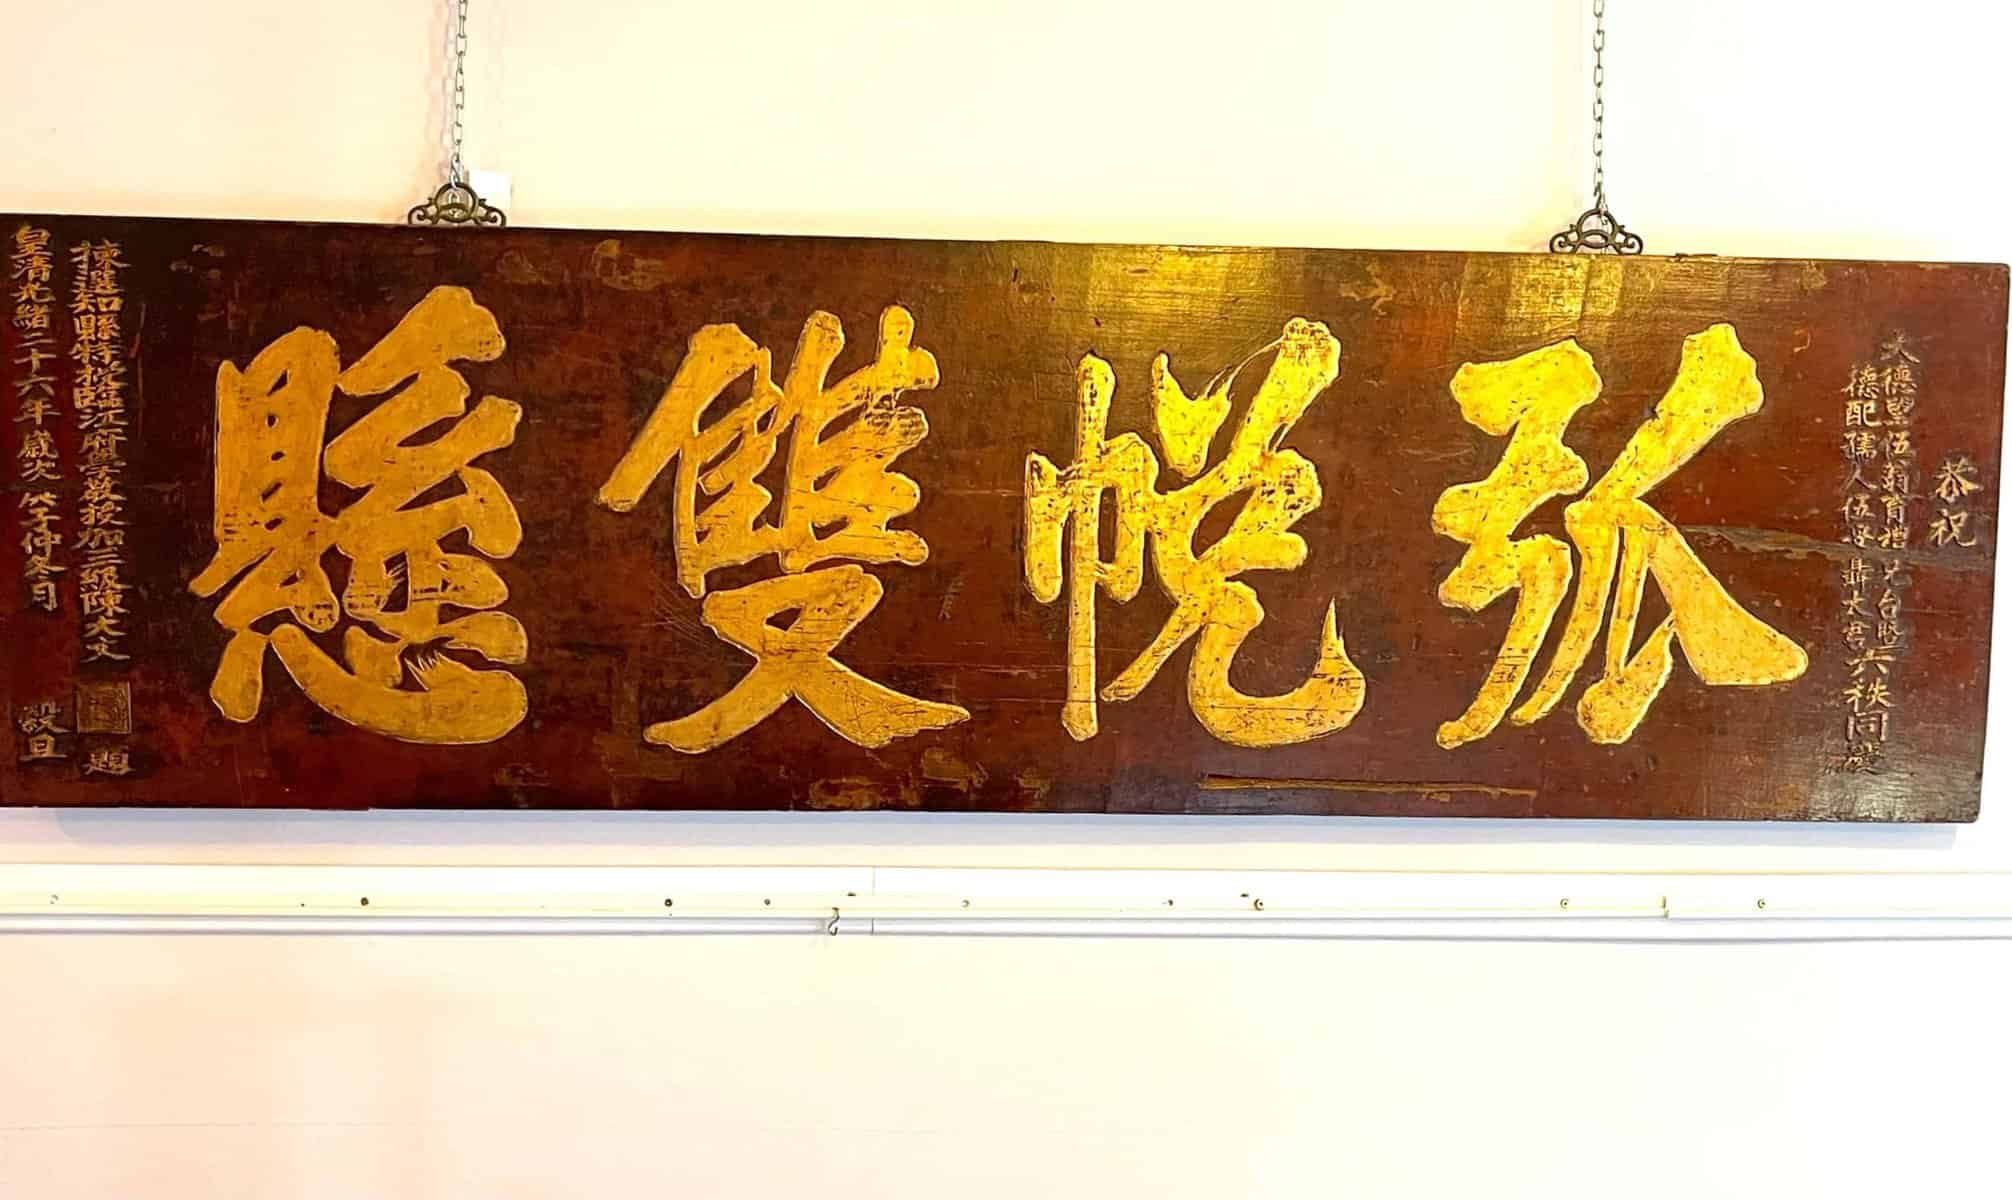 恭祝
大德望伍翁育禮兄台暨
德配孺人伍母聶太君六秩同雙
弧帨雙懸
揀選知縣特授臨江府學教授加三級陳大文題
皇清光緒二十六年歲次仲冬月穀旦